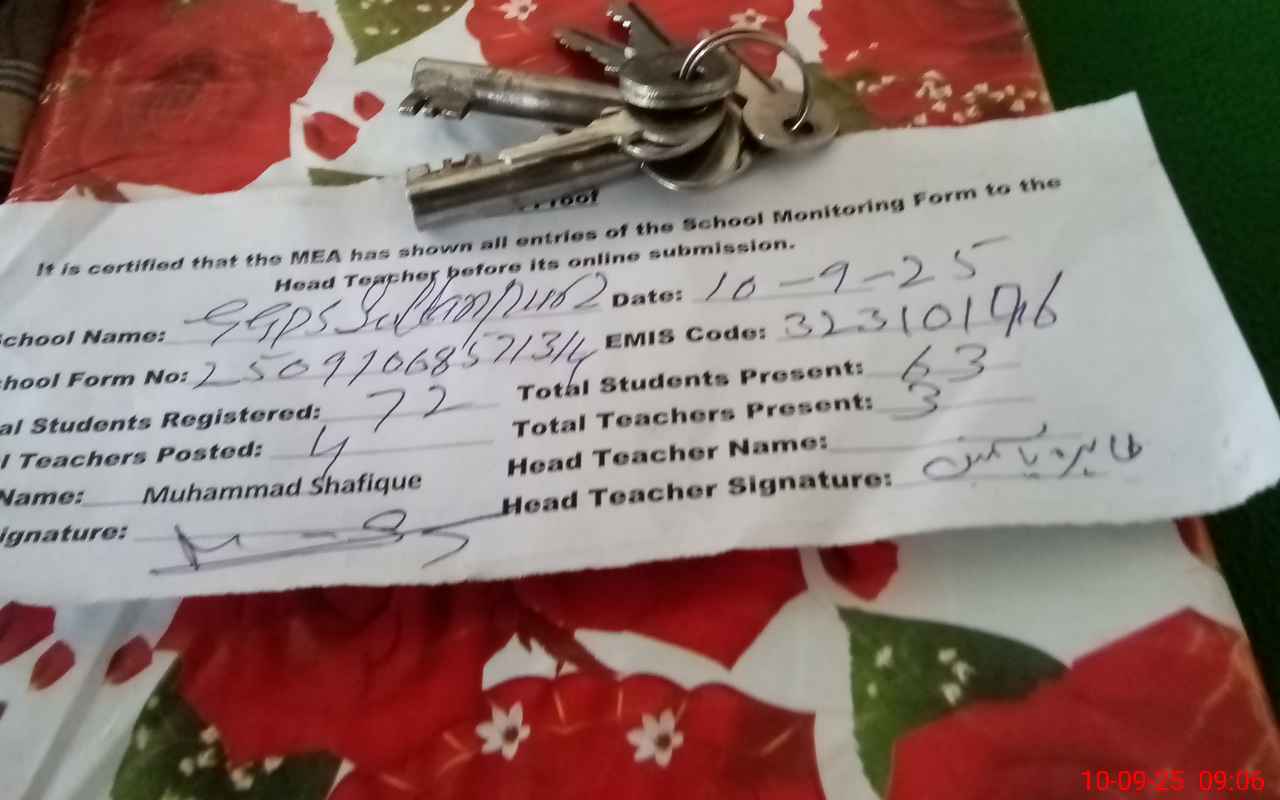 Proof
It is certified that the MEA has shown all entries of the School Monitoring Form to the
Head Teacher before its online submission.
chool Name: GGPS Sultanpur 2 Date: 10-9-25
hool Form No: EMIS Code:
al Students Registered: 72 Total Students Present: 63
l Teachers Posted: 4 Total Teachers Present: 3
Name: Muhammad Shafique Head Teacher Name:
ignature: Head Teacher Signature: طاہرہ یاسمین
10-09-25 09:06